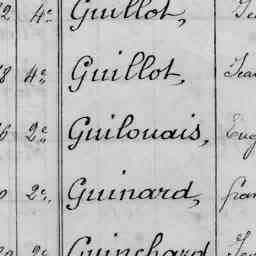 2 4e Guillot,
8 4e Guillot,
6 2e Guilouais, Eug
2e Guinard, fran
2e Guinchard